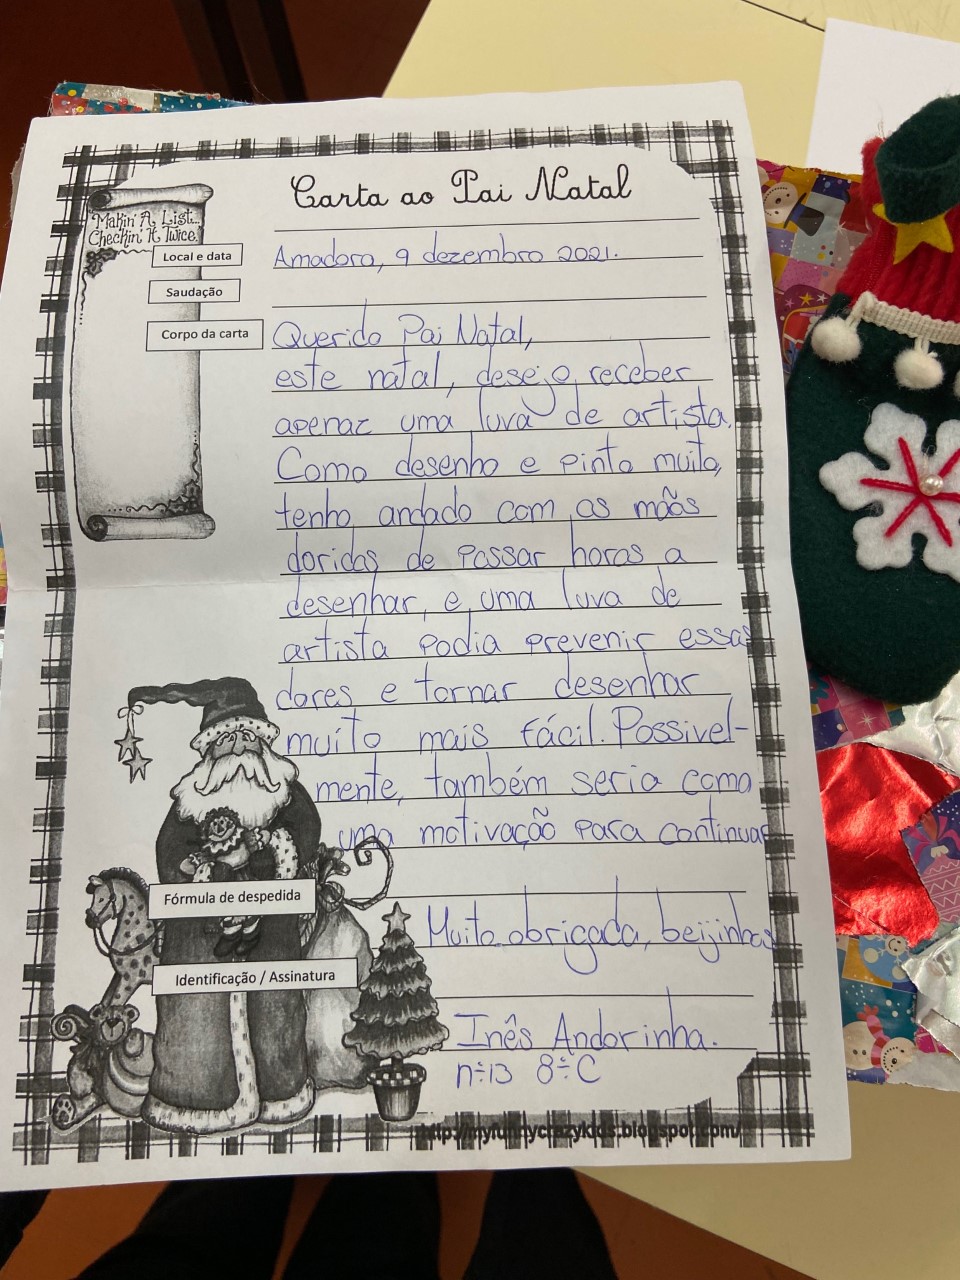 Carta ao Pai Natal
Makin' A List...
Checkin' It Twice.
Local e data
Amadora, 9 dezembro 2021.
Saudação
Corpo da carta
Querido Pai Natal,
este natal, desejo receber
apenaz uma luva de artista.
Como desenho e pinto muito,
tenho andado com as mãos
doridas de passar horas a
desenhar, e uma luva de
artista podia prevenir essas
dores e tornar desenhar
muito mais fácil. Possivel-
mente, também seria como
uma motivação para continuar
Fórmula de despedida
Muito obrigada, beijinhos
Identificação / Assinatura
Inês Andorinha.
nº13 8ºC
http://myfunnycrazykids.blogspot.com/